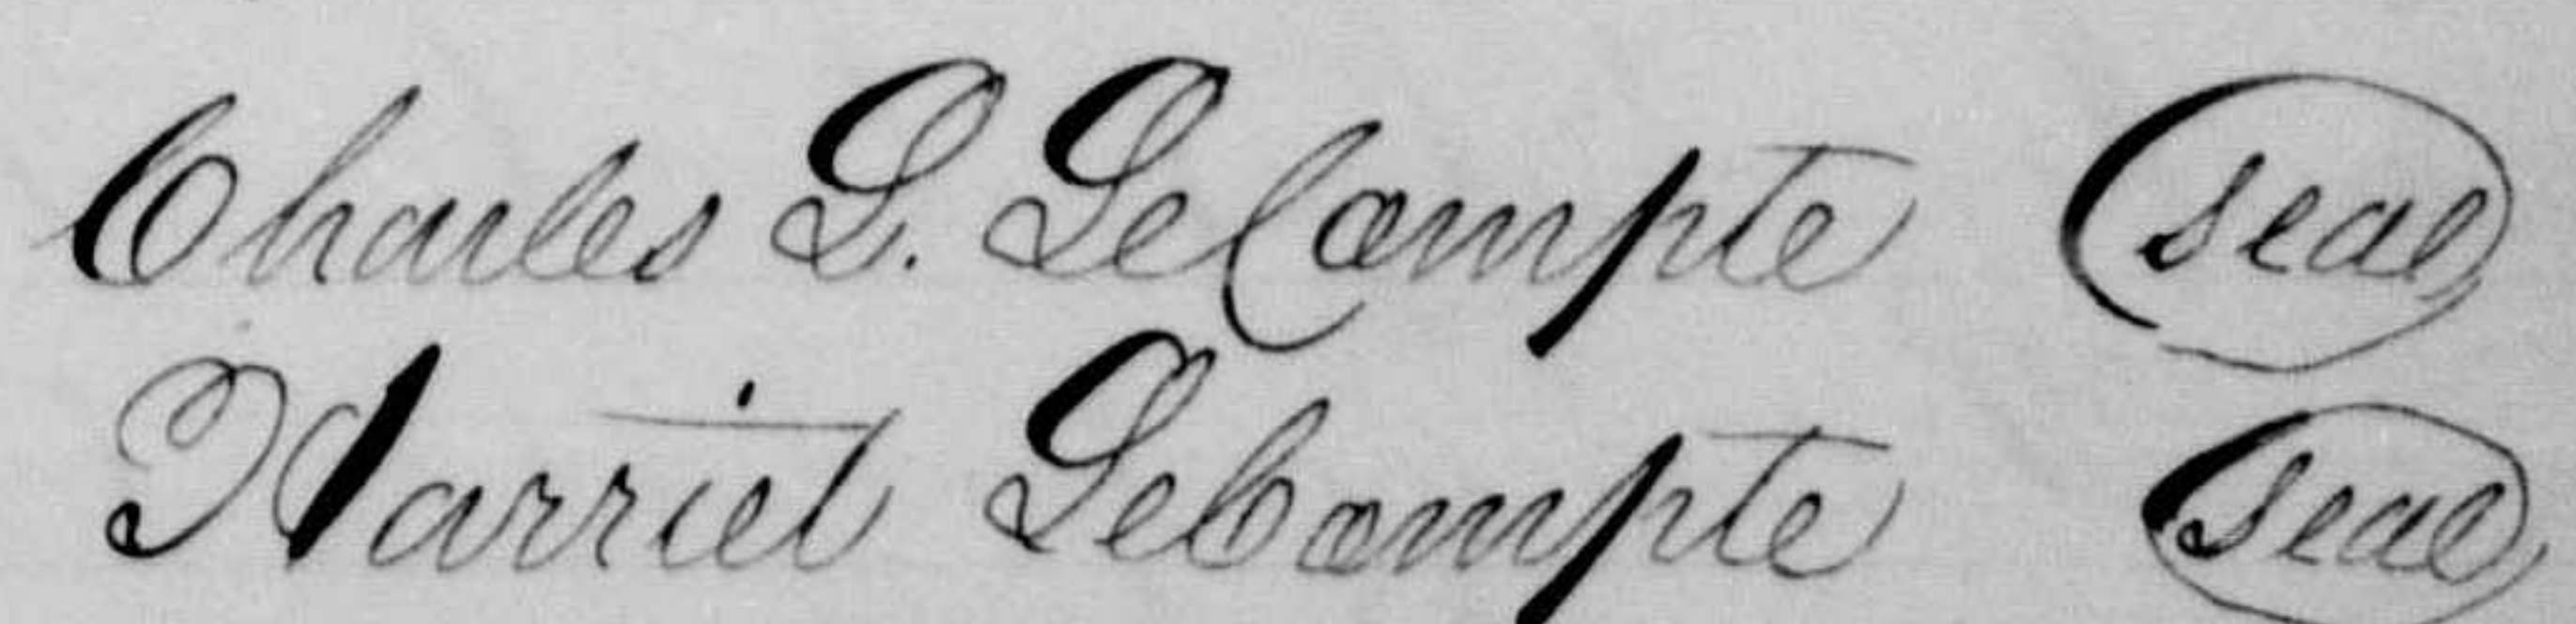 Charles L. LeCompte seal
Harriet LeCompte seal